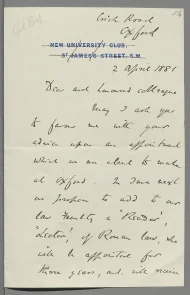 Oxford
NEW UNIVERSITY CLUB,
ST JAMES'S STREET. S.W.
2 April 1881
Dear and honoured colleague
May I ask you
to favour me with your
advice upon an appointment
which we are about to make
at Oxford. In June next
we propose to add to our
Law Faculty a 'Reader',
'Lector', of Roman law, who
will be appointed for
three years, and will receive